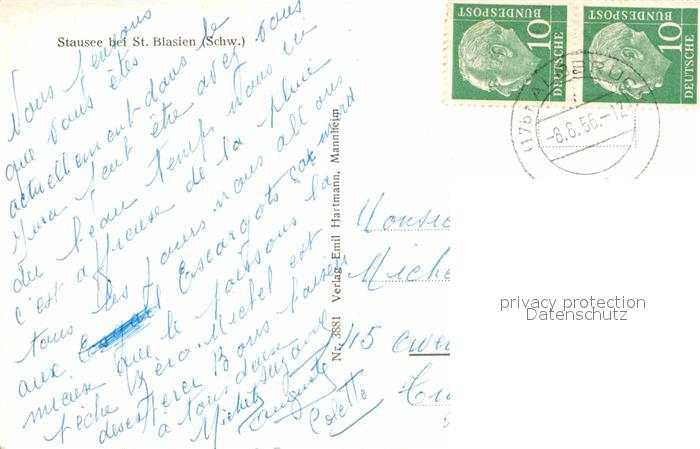 Stausee bei St. Blasien (Schw.)
Nous pensons
que vous êtes
actuellement dans le
Jura peut être avez vous
du beau temps nous ici
c'est affreuse de la pluie
tous les jours nous allons
aux Escargots car
mieux que le poissons la
pêche zéro Michel est
désespéré Bons baisers
à tous deux
Michel Suzanne
Auguste
Colette
Nr. 3881 Verlag Emil Hartmann, Mannheim
10
DEUTSCHE
BUNDESPOST
10
DEUTSCHE
BUNDESPOST
-8.8.56.-12
Monsie
Miche
45
privacy protection
Datenschutz